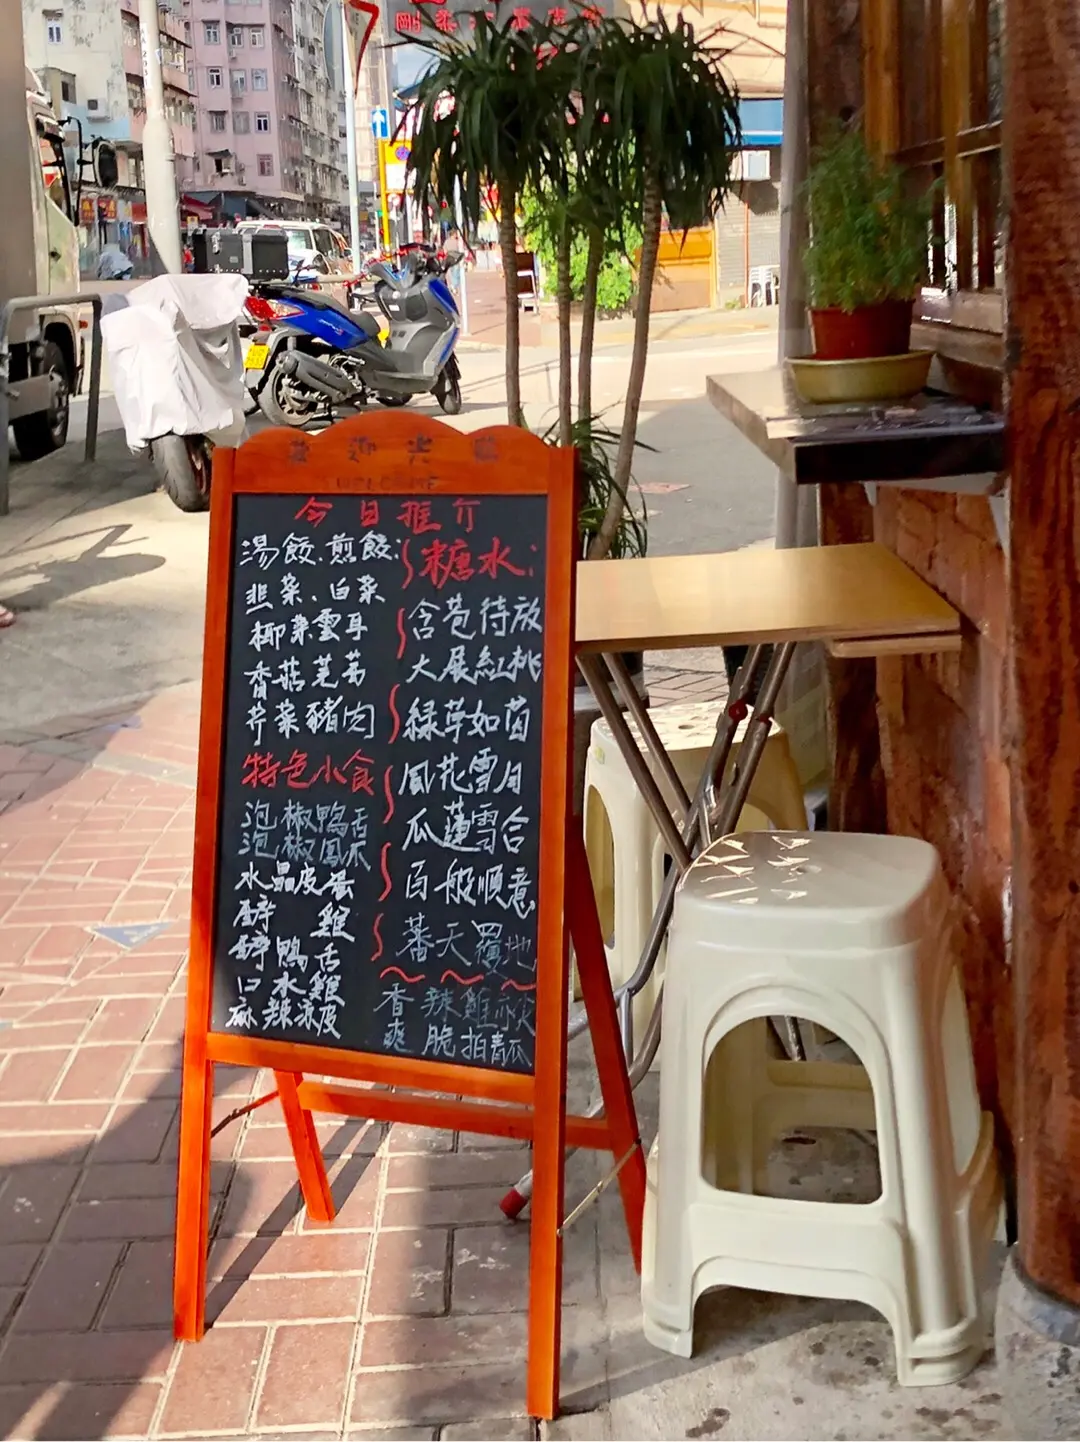 歡迎光臨
WELCOME
今日推介
湯餃、煎餃:
韭菜、白菜
椰菜雲耳
香菇芫茜
芹菜豬肉
特色小食
泡椒鴨舌
泡椒鳳爪
水晶皮蛋
醉雞
醉鴨舌
口水雞
麻辣涼皮
糖水:
含苞待放
大展紅桃
綠草如茵
風花雪月
瓜蓮雪合
百般順意
蕃天覆地
香辣雞
爽脆拍青瓜